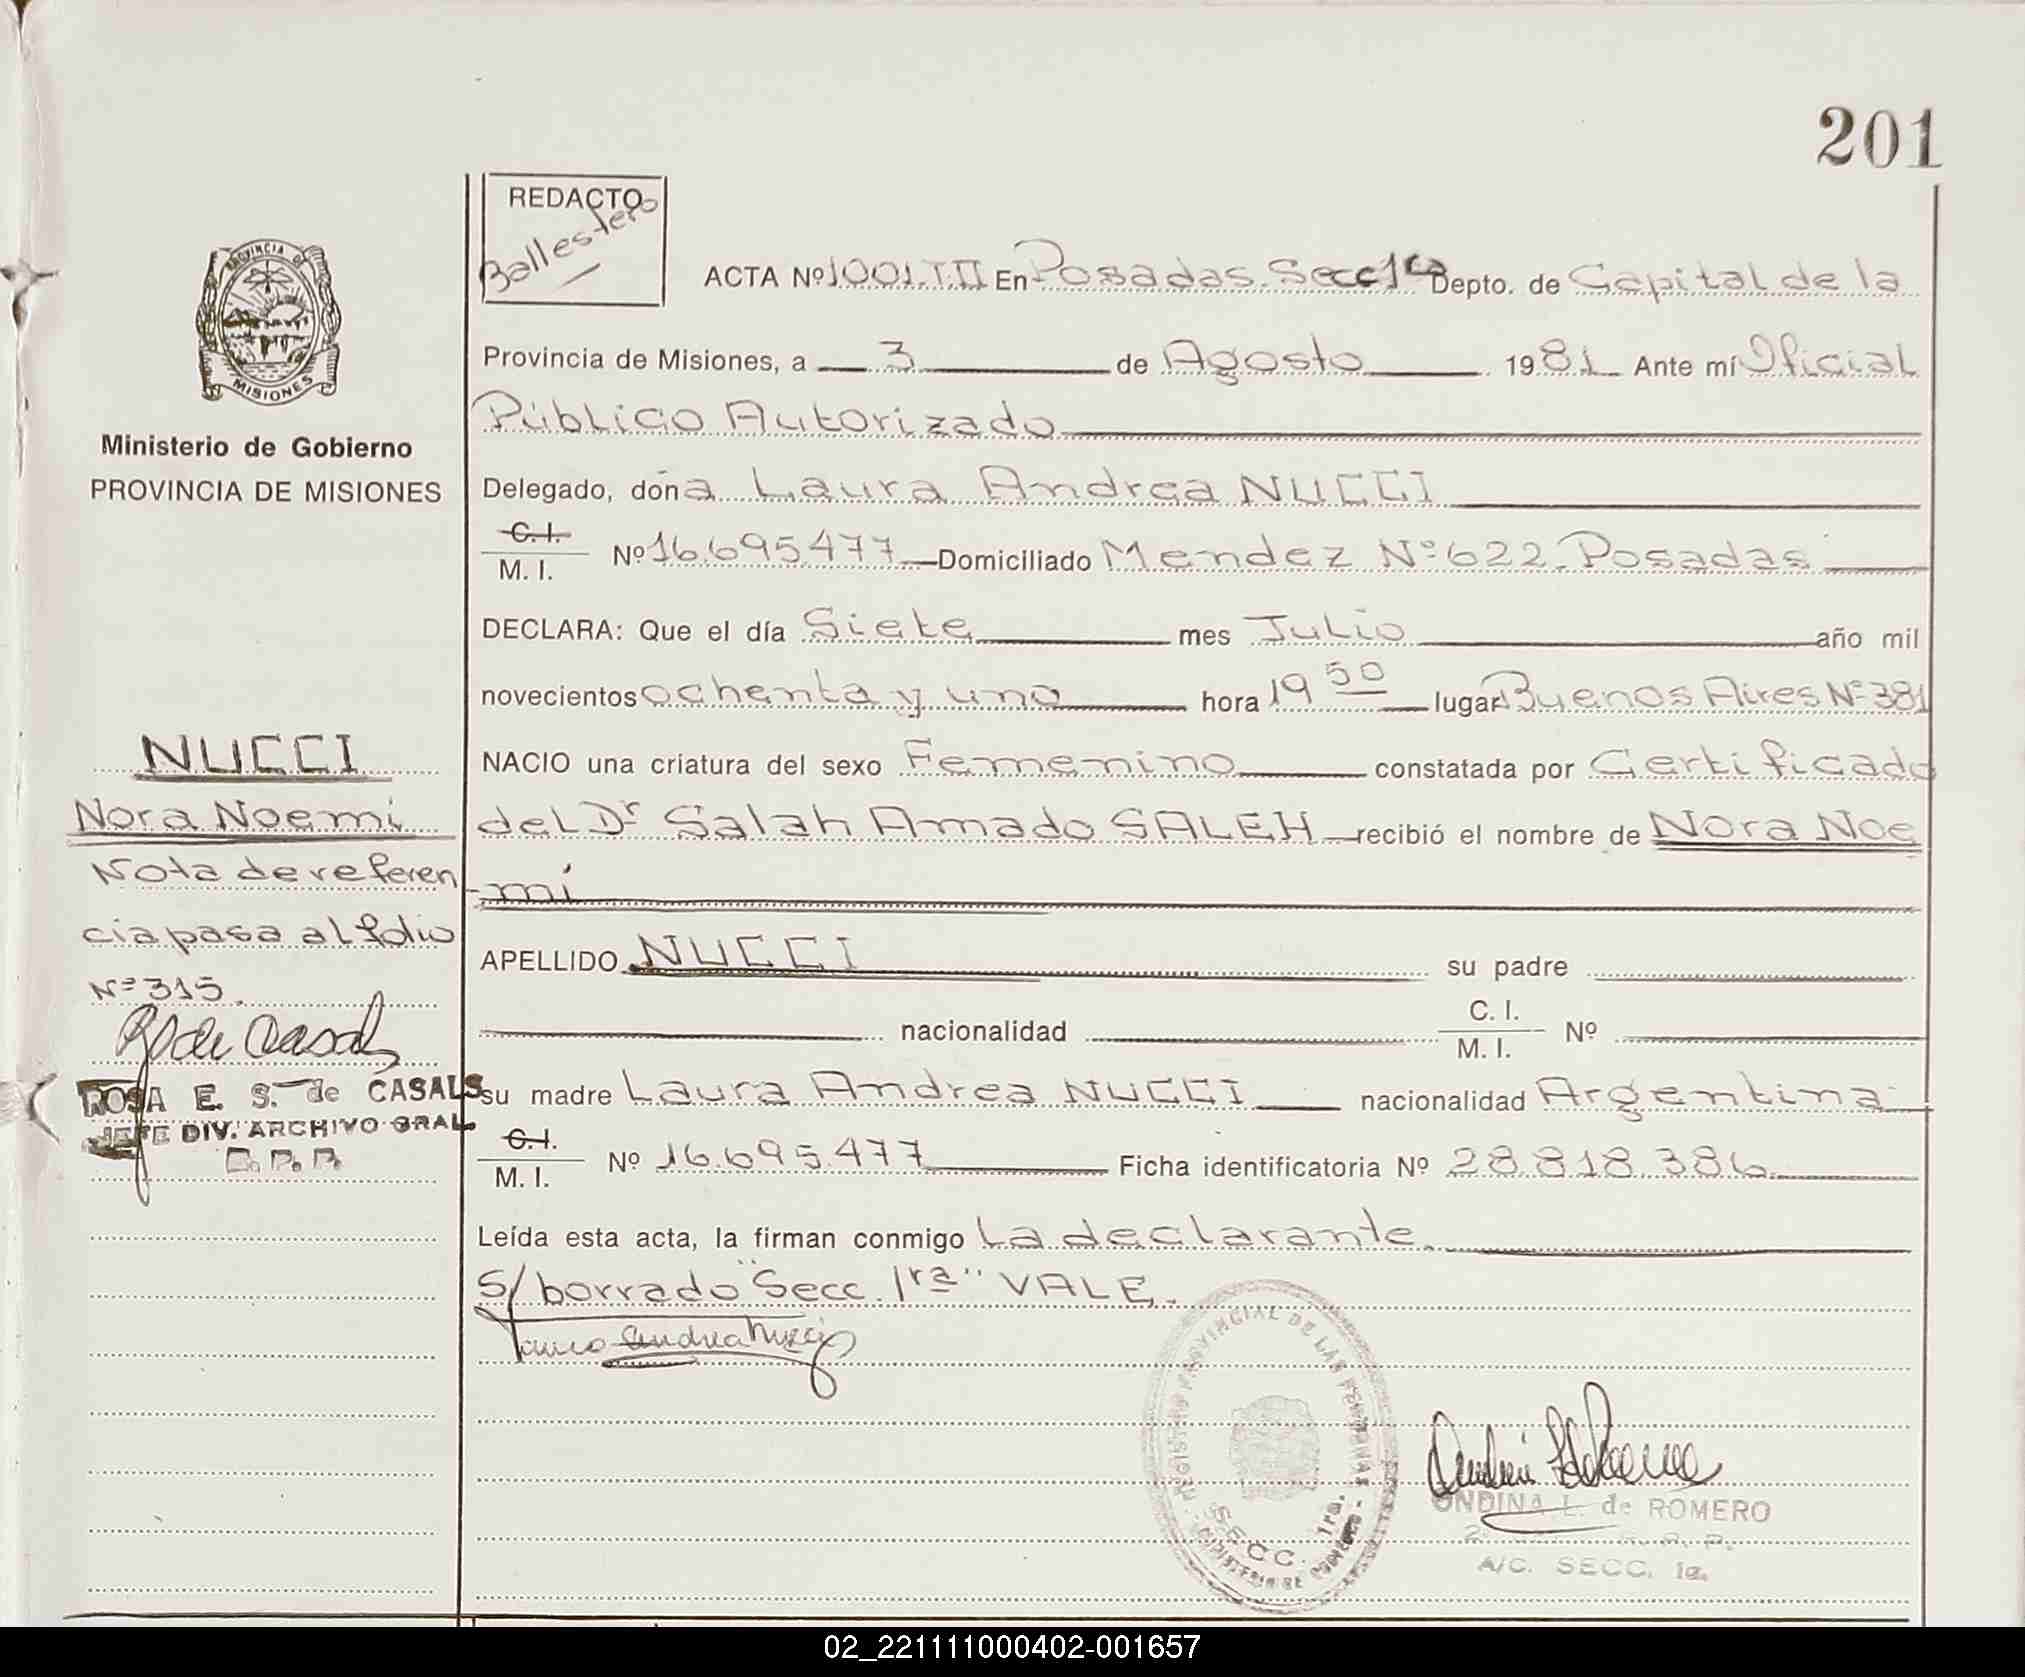 201
REDACTO
Ballestero
PROVINCIA DE
MISIONES
Ministerio de Gobierno
PROVINCIA DE MISIONES
ACTA Nº 1001.T.II En Posadas. Secc 1ra Depto. de Capital de la
Provincia de Misiones, a 3 de Agosto 1981 Ante mí Oficial
Público Autorizado
Delegado, doña Laura Andrea NUCCI
C.I.
M. I. Nº 16.695.477 Domiciliado Mendez Nº 622. Posadas
DECLARA: Que el día Siete mes Julio año mil
novecientos ochenta y uno hora 19 50 lugar Buenos Aires Nº 381
NACIO una criatura del sexo Femenino constatada por Certificado
del Dr Salah Amado SALEH recibió el nombre de Nora Noe
-mí
APELLIDO NUCCI su padre
nacionalidad C. I.
M. I. Nº
su madre Laura Andrea NUCCI nacionalidad Argentina
C.I.
M. I. Nº 16.695.477 Ficha identificatoria Nº 28.818.386
Leída esta acta, la firman conmigo La declarante.
S/borrado "Secc. 1ra" VALE.
Laura Andrea Nucci
NUCCI
Nora Noemí
Nota de referen
cia pasa al folio
Nº 315.
ROSA E. S. de CASALS
JEFE DIV. ARCHIVO GRAL.
REGISTRO PROVINCIAL DE LAS PERSONAS
SECC. 1ra.
MINISTERIO DE GOBIERNO
ONDINA L. de ROMERO
A/C. SECC. 1a.
02_221111000402-001657